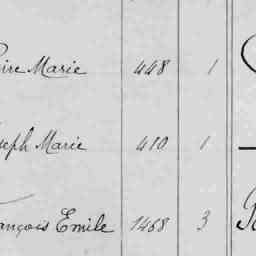 aire Marie 448 1
seph Marie 410 1
ançois Emile 1468 3